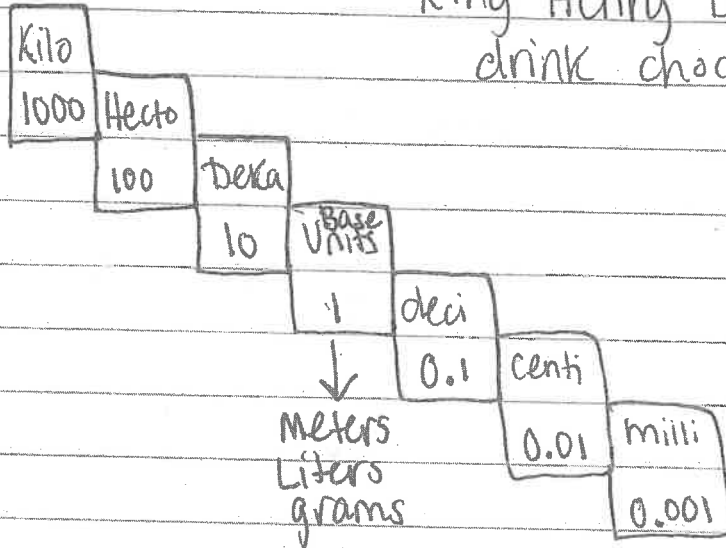 King Henry
drink choc
Kilo
1000
Hecto
100
Deka
10
Base
Units
1
deci
0.1
centi
0.01
milli
0.001
Meters
Liters
grams